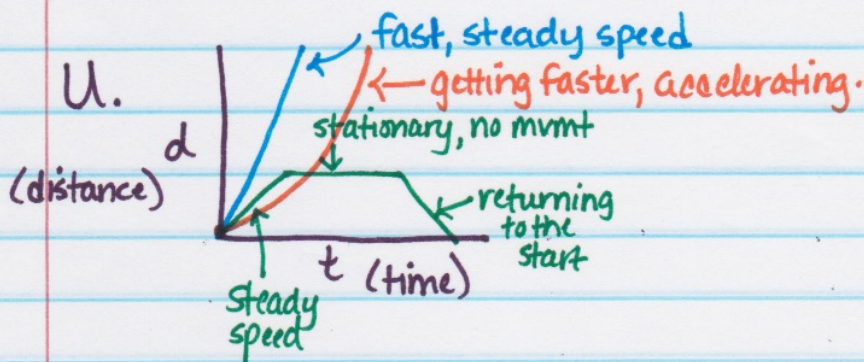 fast, steady speed
U.
getting faster, accelerating.
stationary, no mvmt
d
(distance)
returning
to the
start
t (time)
steady
speed